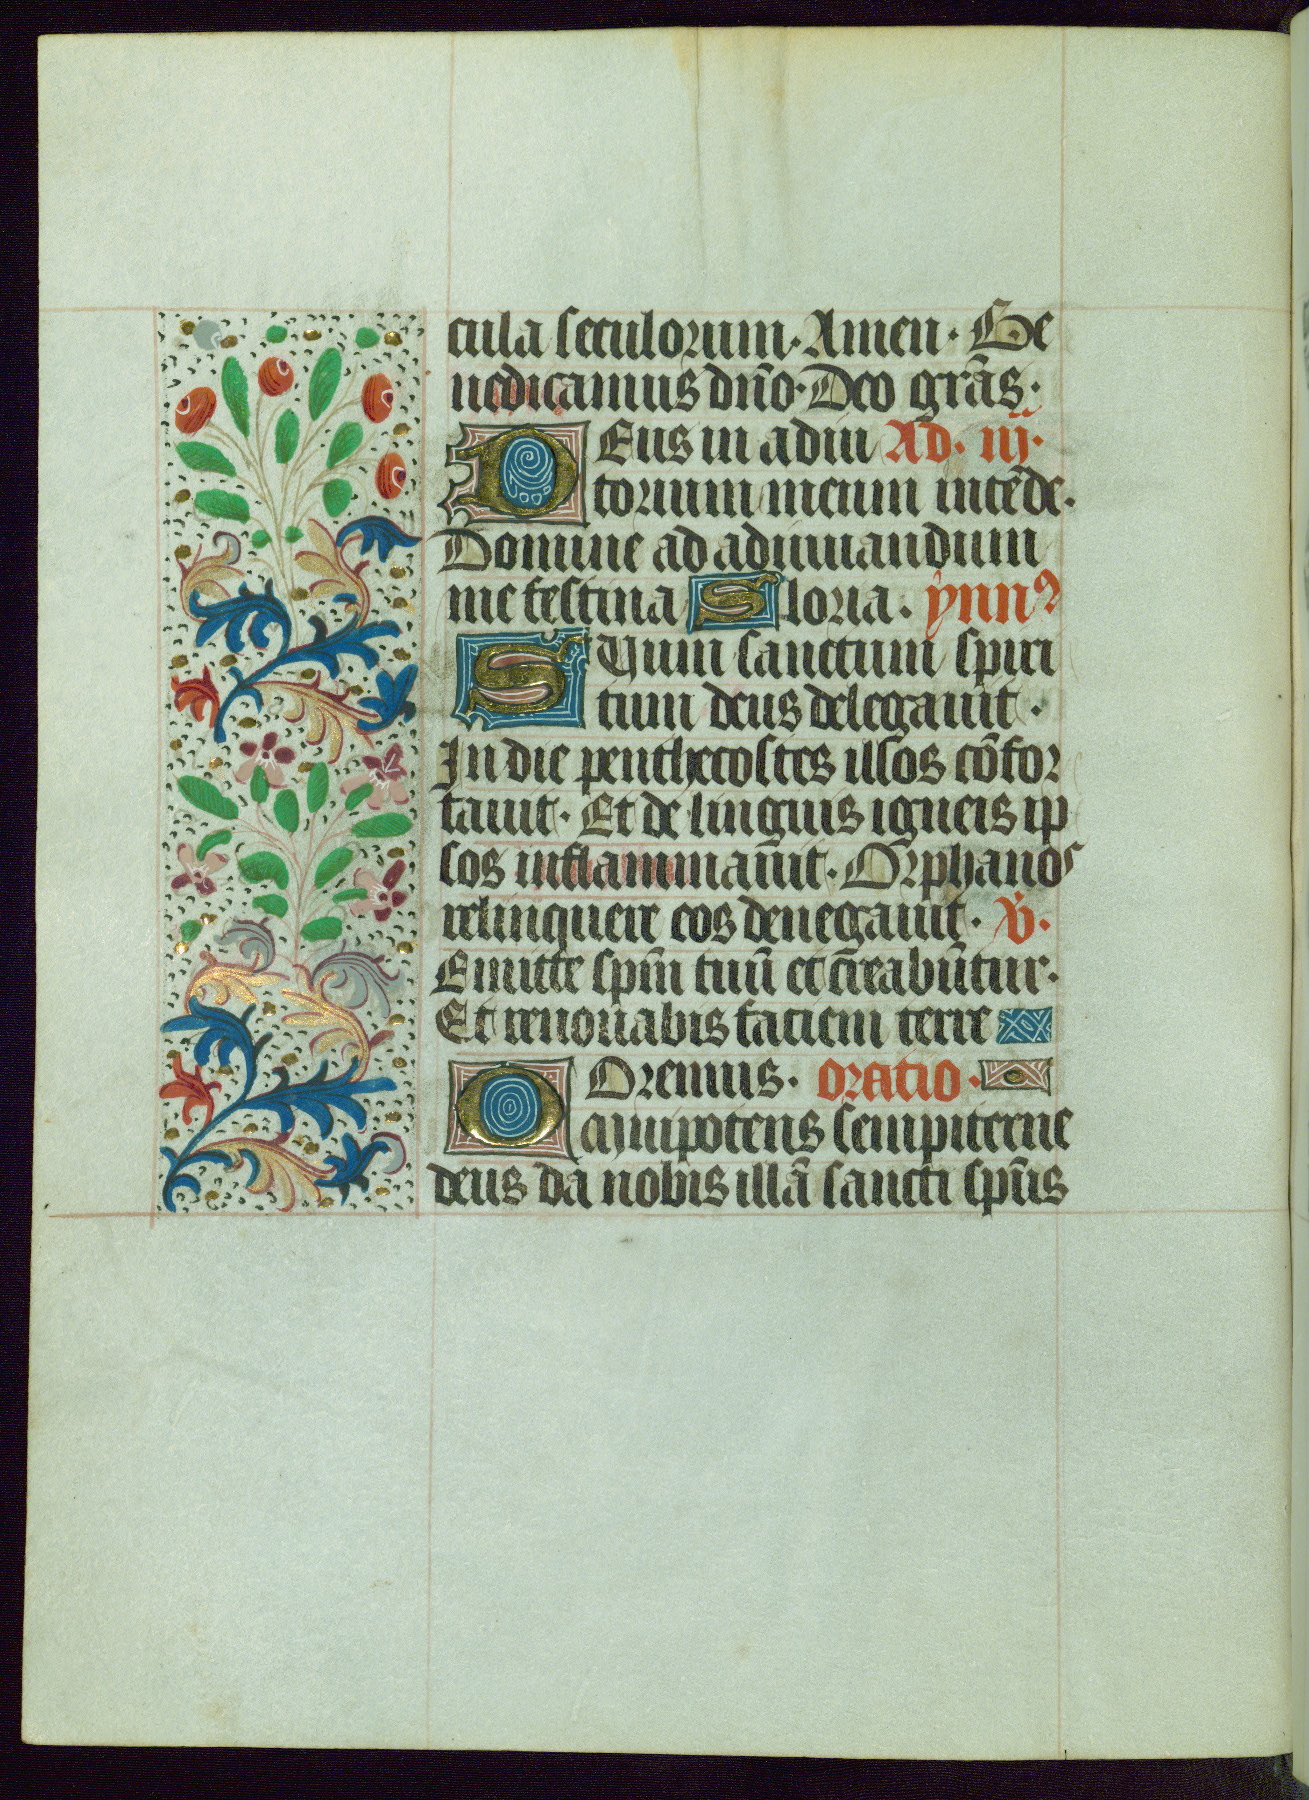 cula seculorum. Amen. Be
nedicamus dño. Deo grãs.
Deus in adiu Ad. iij.
torium meum intẽde.
Domine ad adiuuandum
me festina Gloria. ymnꝰ
Suum sanctum spiri
tum deus delegauit.
In die penthecostes illsos cõfor
tauit. Et de linguis igneis ip
sos inflammauit. Orphanos
relinquere eos denegauit. V̾.
Emitte spm̃ tuũ et creabũtur.
Et renouabis faciem terre
Oremus. oratio.
Omnipotens sempiterne
deus da nobis illã sancti spũs